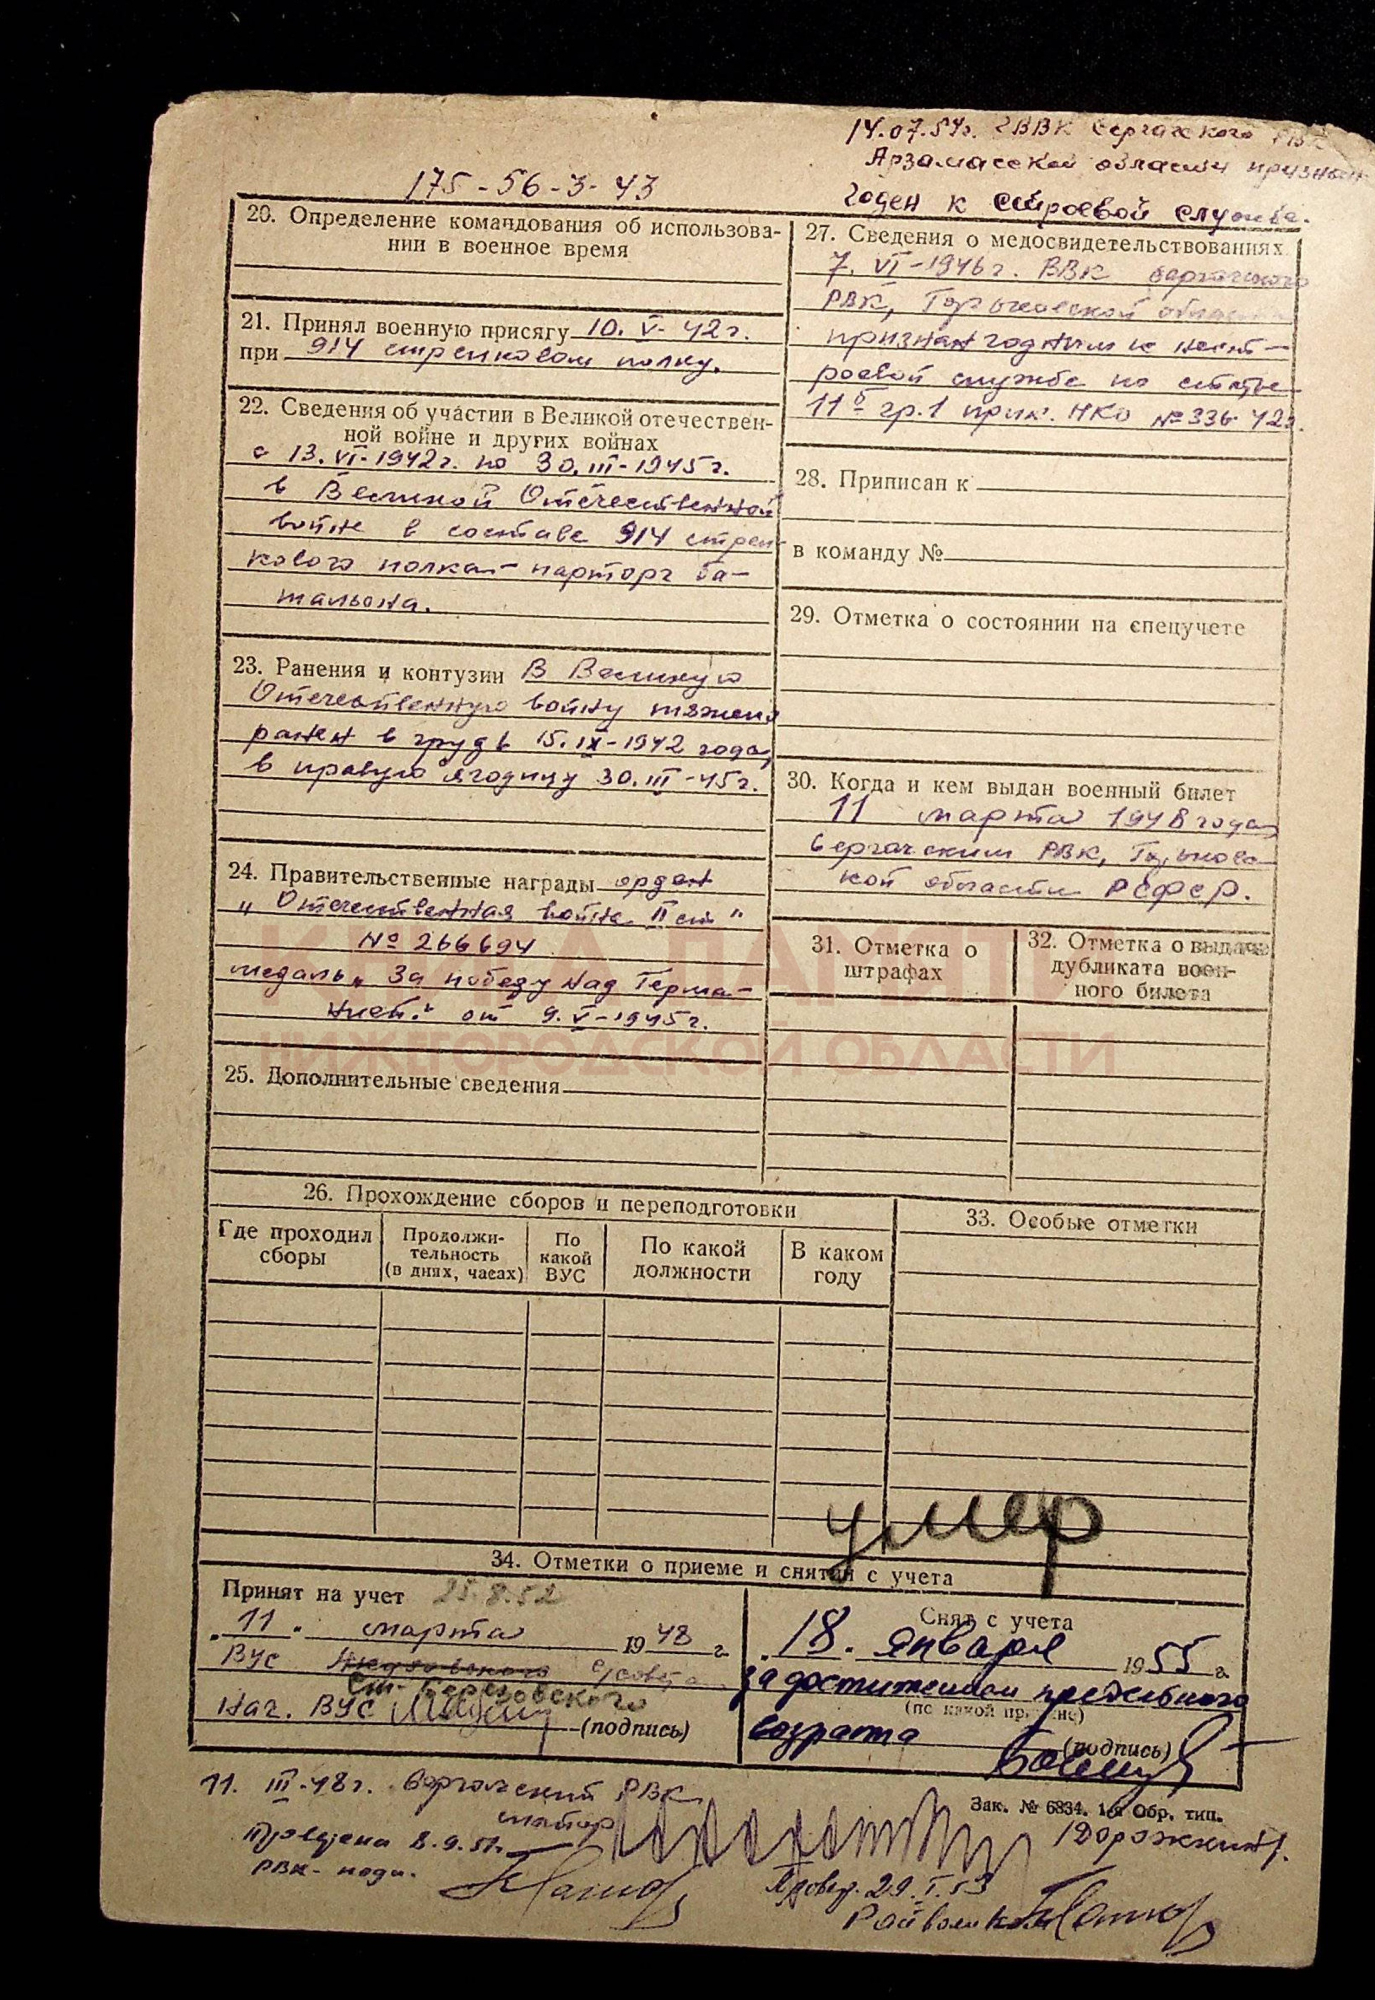 14.07.54г. ГВВК Сергачского РВК
Арзамасской области признан
годен к строевой службе.
175-56-3-43
20. Определение командования об использова-
нии в военное время
21. Принял военную присягу 10. V-42г.
при 914 стрелковом полку.
22. Сведения об участии в Великой отечествен-
ной войне и других войнах
с 13. VI-1942г. по 30. III-1945г.
в Великой Отечественной
войне в составе 914 стрел-
кового полка - парторг ба-
тальона.
23. Ранения и контузии В Великую
Отечественную войну тяжело
ранен в грудь 15. IX-1942 года,
в правую ягодицу 30. III-45г.
24. Правительственные награды орден
„Отечественная война II ст"
№ 266694
медаль „За победу над Герма-
нией." от 9. V-1945г.
25. Дополнительные сведения
27. Сведения о медосвидетельствованиях
7. VI-1946г. ВВК Сергачского
РВК, Горьковской области
признан годным к нест-
роевой службе по статье
11б гр.1 прик. НКО № 336-42г.
28. Приписан к
в команду №
29. Отметка о состоянии на спецучете
30. Когда и кем выдан военный билет
11 марта 1948 года
Сергачским РВК, Горьковс-
кой области РСФСР.
31. Отметка о
штрафах
32. Отметка о выдаче
дубликата воен-
ного билета
КНИГА ПАМЯТИ
НИЖЕГОРОДСКОЙ ОБЛАСТИ
26. Прохождение сборов и переподготовки
Где проходил
сборы
Продолжи-
тельность
(в днях, часах)
По
какой
ВУС
По какой
должности
В каком
году
33. Особые отметки
умер
34. Отметки о приеме и снятии с учета
Принят на учет 25.8.52
„11" марта 1948 г.
ВУС с/совета
Ст-Березовского
Нач. ВУС (подпись)
Снят с учета
„18" января 1955 г.
за достижением предельного
(по какой причине)
возраста
(подпись)
Зак. № 6834. 1-я Обр. тип.
11. III-48г. Сергачский РВК
майор /Дорожкин/.
Проверена 8.9.51г.
РВК
Провер. 29.I.53
Райвоенком